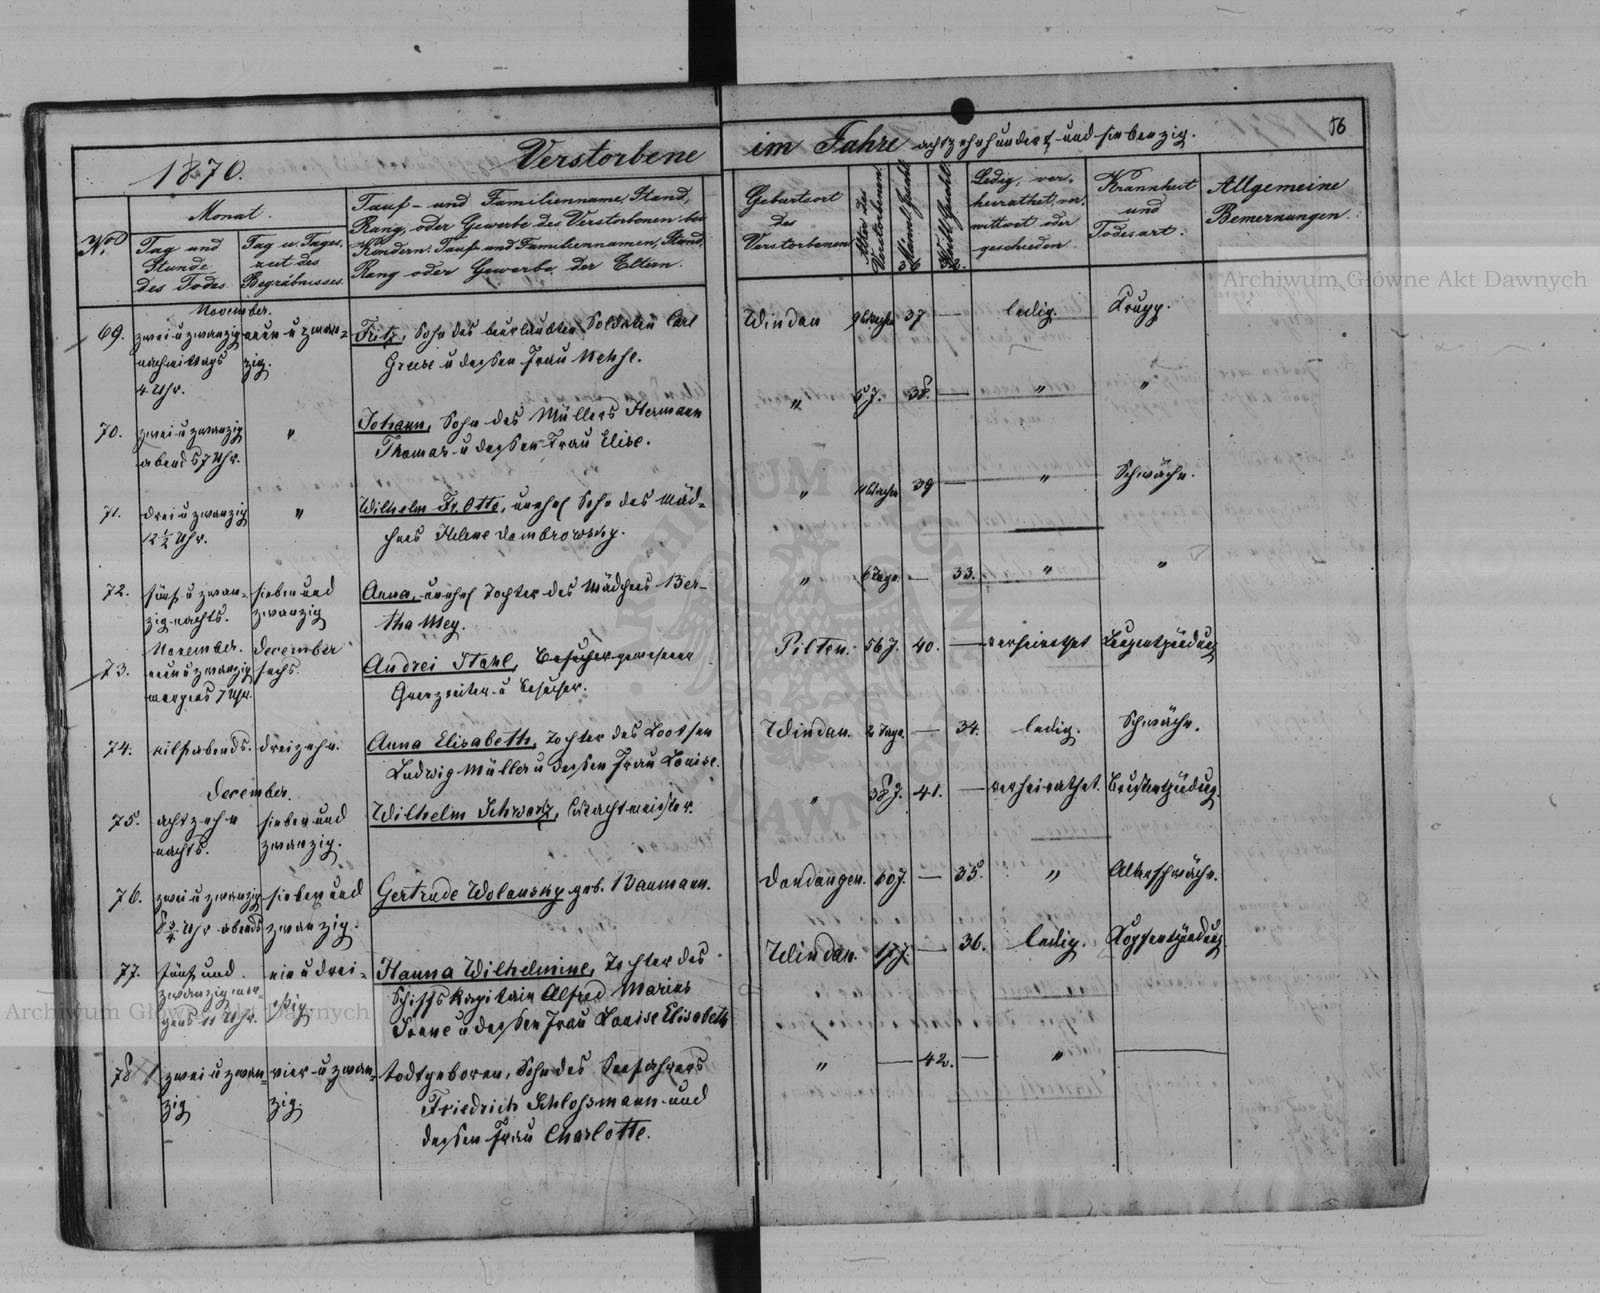 1870.
Verstorbene
im Jahre achtzehnhundert und siebenzig.
56
No.
Monat.
Tag und
Stunde
des Todes.
Tag u. Tages.
zeit des
Begräbnisses.
Tauf- und Familienname, Stand,
Rang, oder Gewerbe des Verstorbenen bei
Kindern: Tauf- und Familiennamen, Stand,
Rang oder Gewerbe der Eltern.
Geburtsort
des
Verstorbenen
Alter des
Verstorbenen.
Männl. Geschl.
36
Weibl. Geschl.
32.
Ledig, ver-
heirathet, ver-
wittwet oder
geschieden.
Krankheit
und
Todesart.
Allgemeine
Bemerkungen.
November.
69. zwei u zwanzig neun u zwan- Fritz, Sohn des beurlaubten Soldaten Carl Windau 9 Wochen 37 — ledig. Krupp.
nachmittags zig. u dessen Frau
4 Uhr.
70. zwei u zwanzig " Johann, Sohn des Müllers Hermann " 5 J. 38. — " "
abends 7 Uhr. Thomas u dessen Frau Elise.
71. drei u zwanzig " Wilhelm Fr. Otto, unehel Sohn des Mäd- " Wochen 39 — " Schwäche.
12 1/2 Uhr. chens Helene Dombrowsky.
72. fünf u zwan- sieben und Anna, unehel Tochter des Mädchens Ber- " 6 Tage. — 33. " "
zig nachts. zwanzig tha Mey.
November. December
73. neun u zwanzig sechs. Andrei Stahl, Besucher gewesener Pilten. 56 J. 40. — verheirathet Lungenentzündung
morgens 7 Uhr. Grenzreiter u Besucher.
74. eilf abends. dreizehn. Anna Elisabeth, Tochter des Lootsen Windau. 2 Tage. — 34. ledig. Schwäche.
Ludwig Müller u dessen Frau Louise.
December.
75. achtzehn sieben und Wilhelm Schwartz, Wachtmeister. " 38 J. 41. — verheirathet. Brustentzündung.
nachts. zwanzig.
76. zwei u zwanzig sieben und Gertrude Wolansky geb. Baumann. Dondangen. 60 J. — 35. " Altersschwäche.
8 3/4 Uhr abends zwanzig.
77. fünf und ein u drei- Hanna Wilhelmine, Tochter des Windau. 17 J. — 36. ledig. Kopfentzündung
zwanzig mor- ßig. Schiffskapitain Alfred Marius
gens 11 Uhr. u dessen Frau Louise Elisabeth
78 zwei u zwan- vier u zwan- todtgeboren, Sohn des Seefahrers " — 42. — " —
zig zig. Friedrich Schlossmann und
dessen Frau Charlotte.
Archiwum Główne Akt Dawnych
Archiwum Główne Akt Dawnych